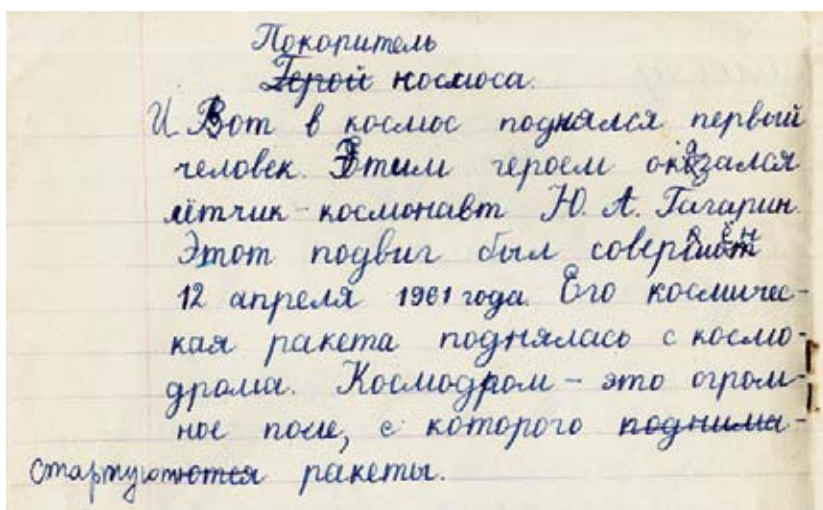 Покоритель
Герой космоса.
И Вот в космос поднялся первый
человек. Этим героем оказался
лётчик-космонавт Ю. А. Гагарин.
Этот подвиг был совершён
12 апреля 1961 года. Его космичес-
кая ракета поднялась с космо-
дрома. Космодром – это огром-
ное поле, с которого поднима-
стартуютются ракеты.